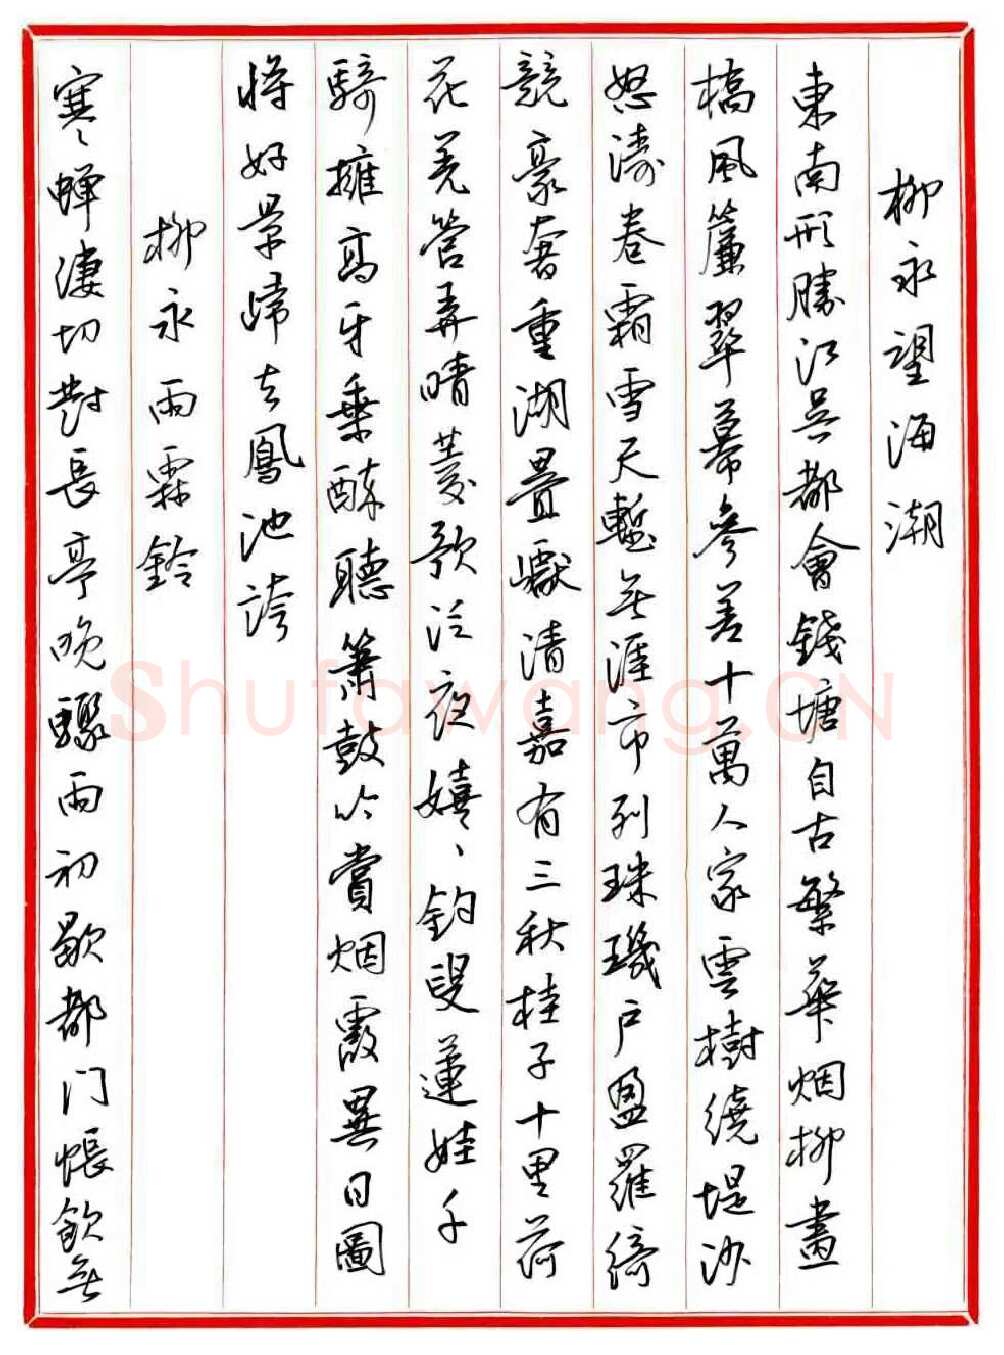 柳永望海潮
東南形勝江吴都會錢塘自古繁華烟柳畫
橋風簾翠幕參差十萬人家雲樹繞堤沙
怒濤卷霜雪天塹無涯市列珠璣戶盈羅綺
競豪奢重湖疊巘清嘉有三秋桂子十里荷
花羌管弄晴菱歌泛夜嬉〻釣叟蓮娃千
騎擁高牙乗醉聽簫鼓吟賞烟霞異日圖
將好景歸去鳳池誇
柳永雨霖鈴
寒〻蟬凄切對長亭晚驟雨初歇都门帳飲無
Shufawang.CN